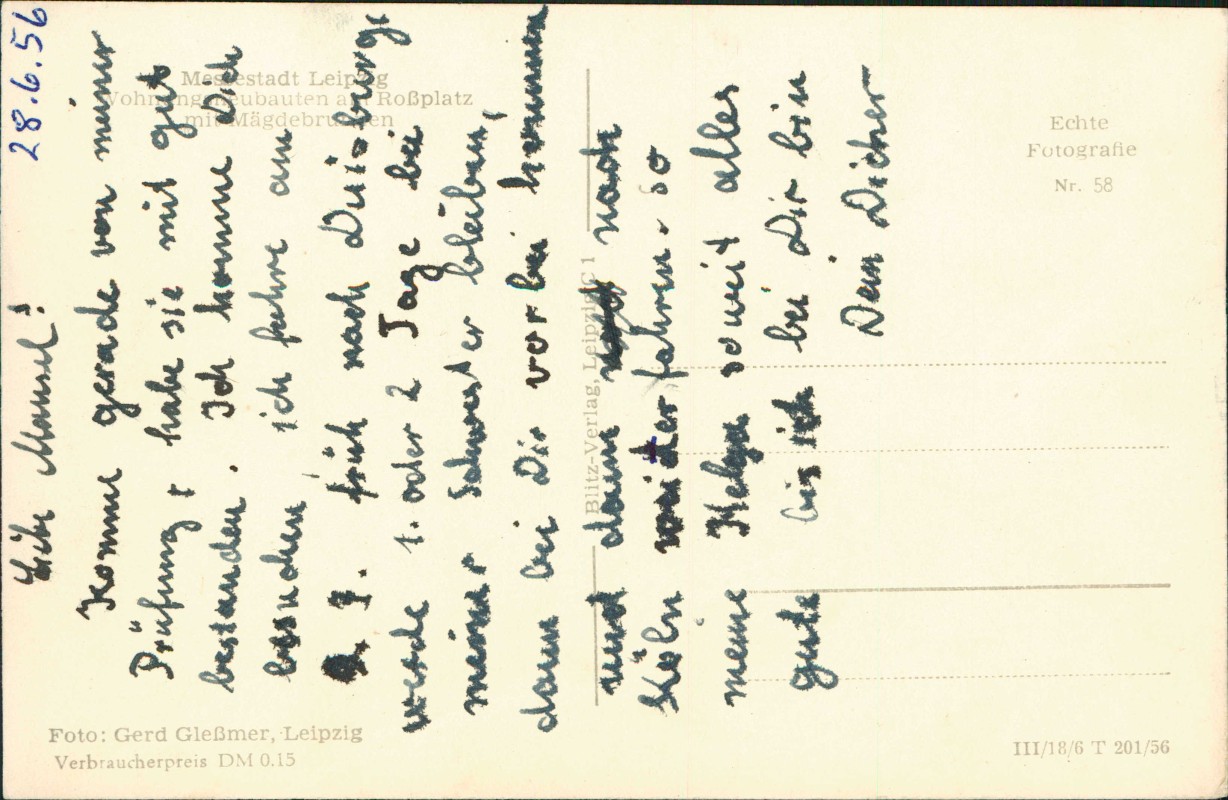 28.6.56
Liebe Mamsel!
Komme gerade von meiner
Prüfung + habe sie mit gut
bestanden. Ich komme Dich
besuchen ich fahre am
7. früh nach Duisburg
werde 1. oder 2 Tage bei
meiner Schwester bleiben,
dann bei Dir vorbei kommen
und dann nach
Köln weiter fahren. so
mein soweit alles
gute bis ich bei Dir bin
Dein Dicker
Messestadt Leipzig
Wohnungsneubauten am Roßplatz
mit Mägdebrunnen
Echte
Fotografie
Nr. 58
Blitz-Verlag, Leipzig C 1
Foto: Gerd Gleßmer, Leipzig
Verbraucherpreis DM 0.15
III/18/6 T 201/56